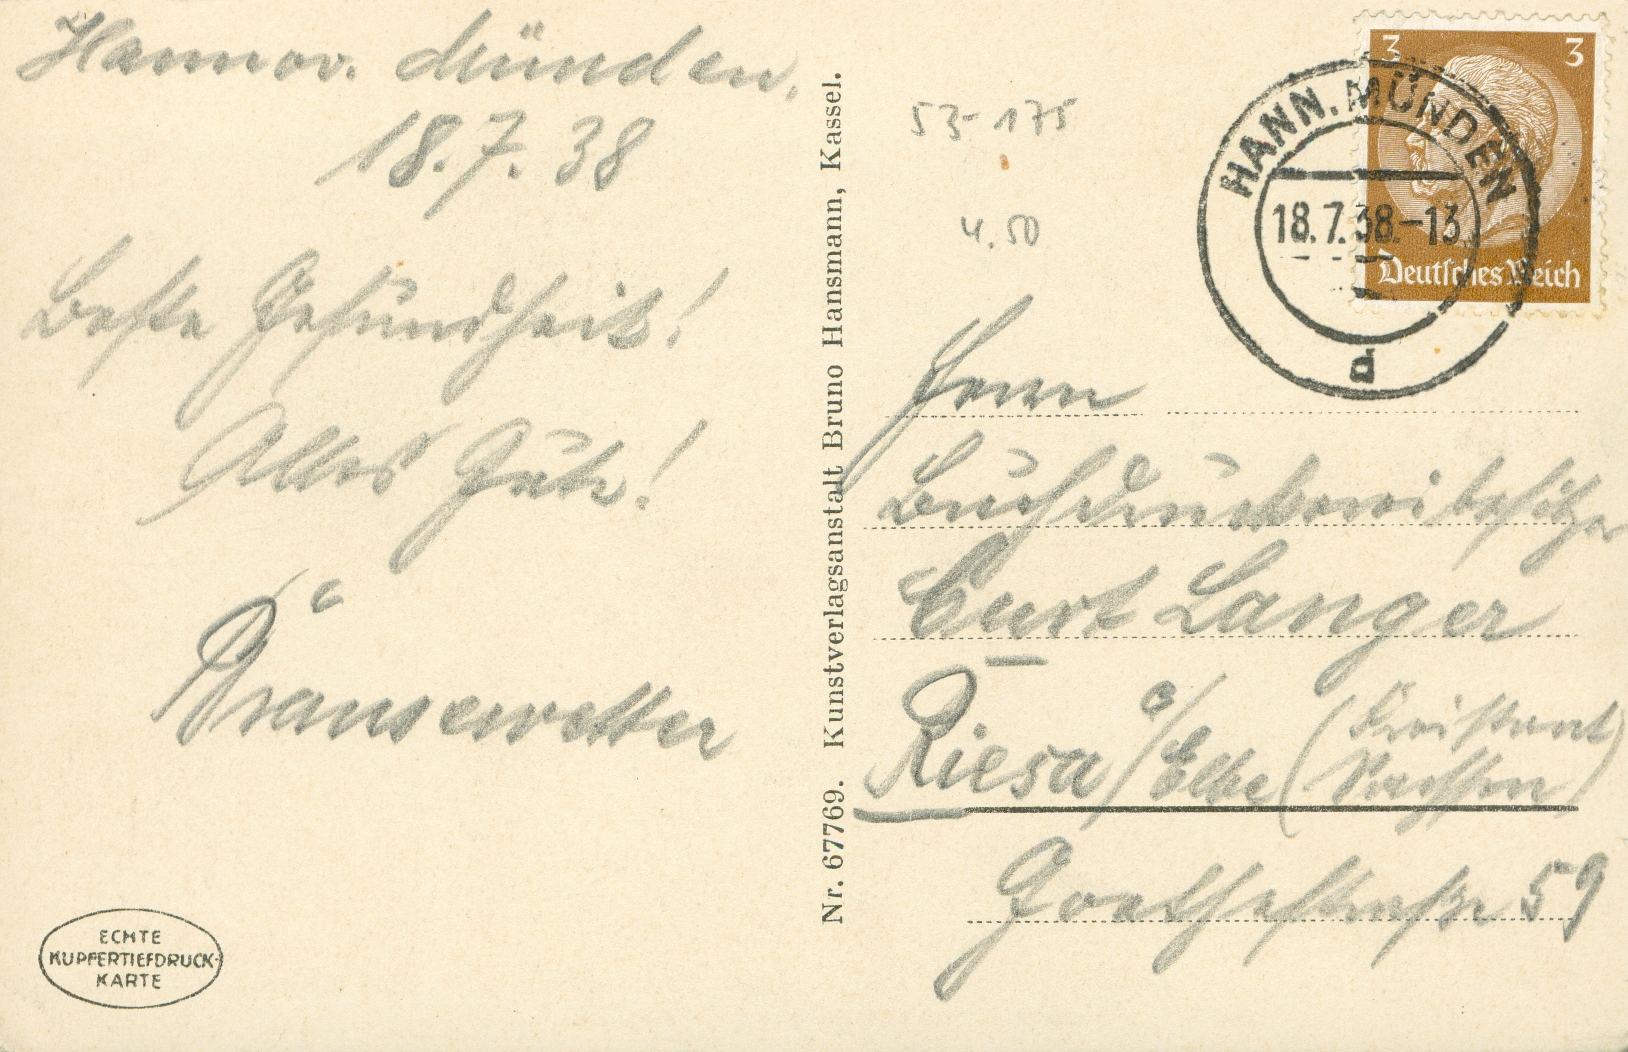 Hannov. Münden,
18.7.38
Beste Gesundheit!
Alles Gute!
Bransewetter
ECHTE
KUPFERTIEFDRUCK-
KARTE
Nr. 67769. Kunstverlagsanstalt Bruno Hansmann, Kassel.
53-175
4.50
3 3
Deutsches Reich
HANN. MÜNDEN
18.7.38.-13
d
Herrn
Buchdruckereibesitzer
Curt Langer
Riesa a/Elbe (Freistaat
Sachsen)
Goethestraße 59